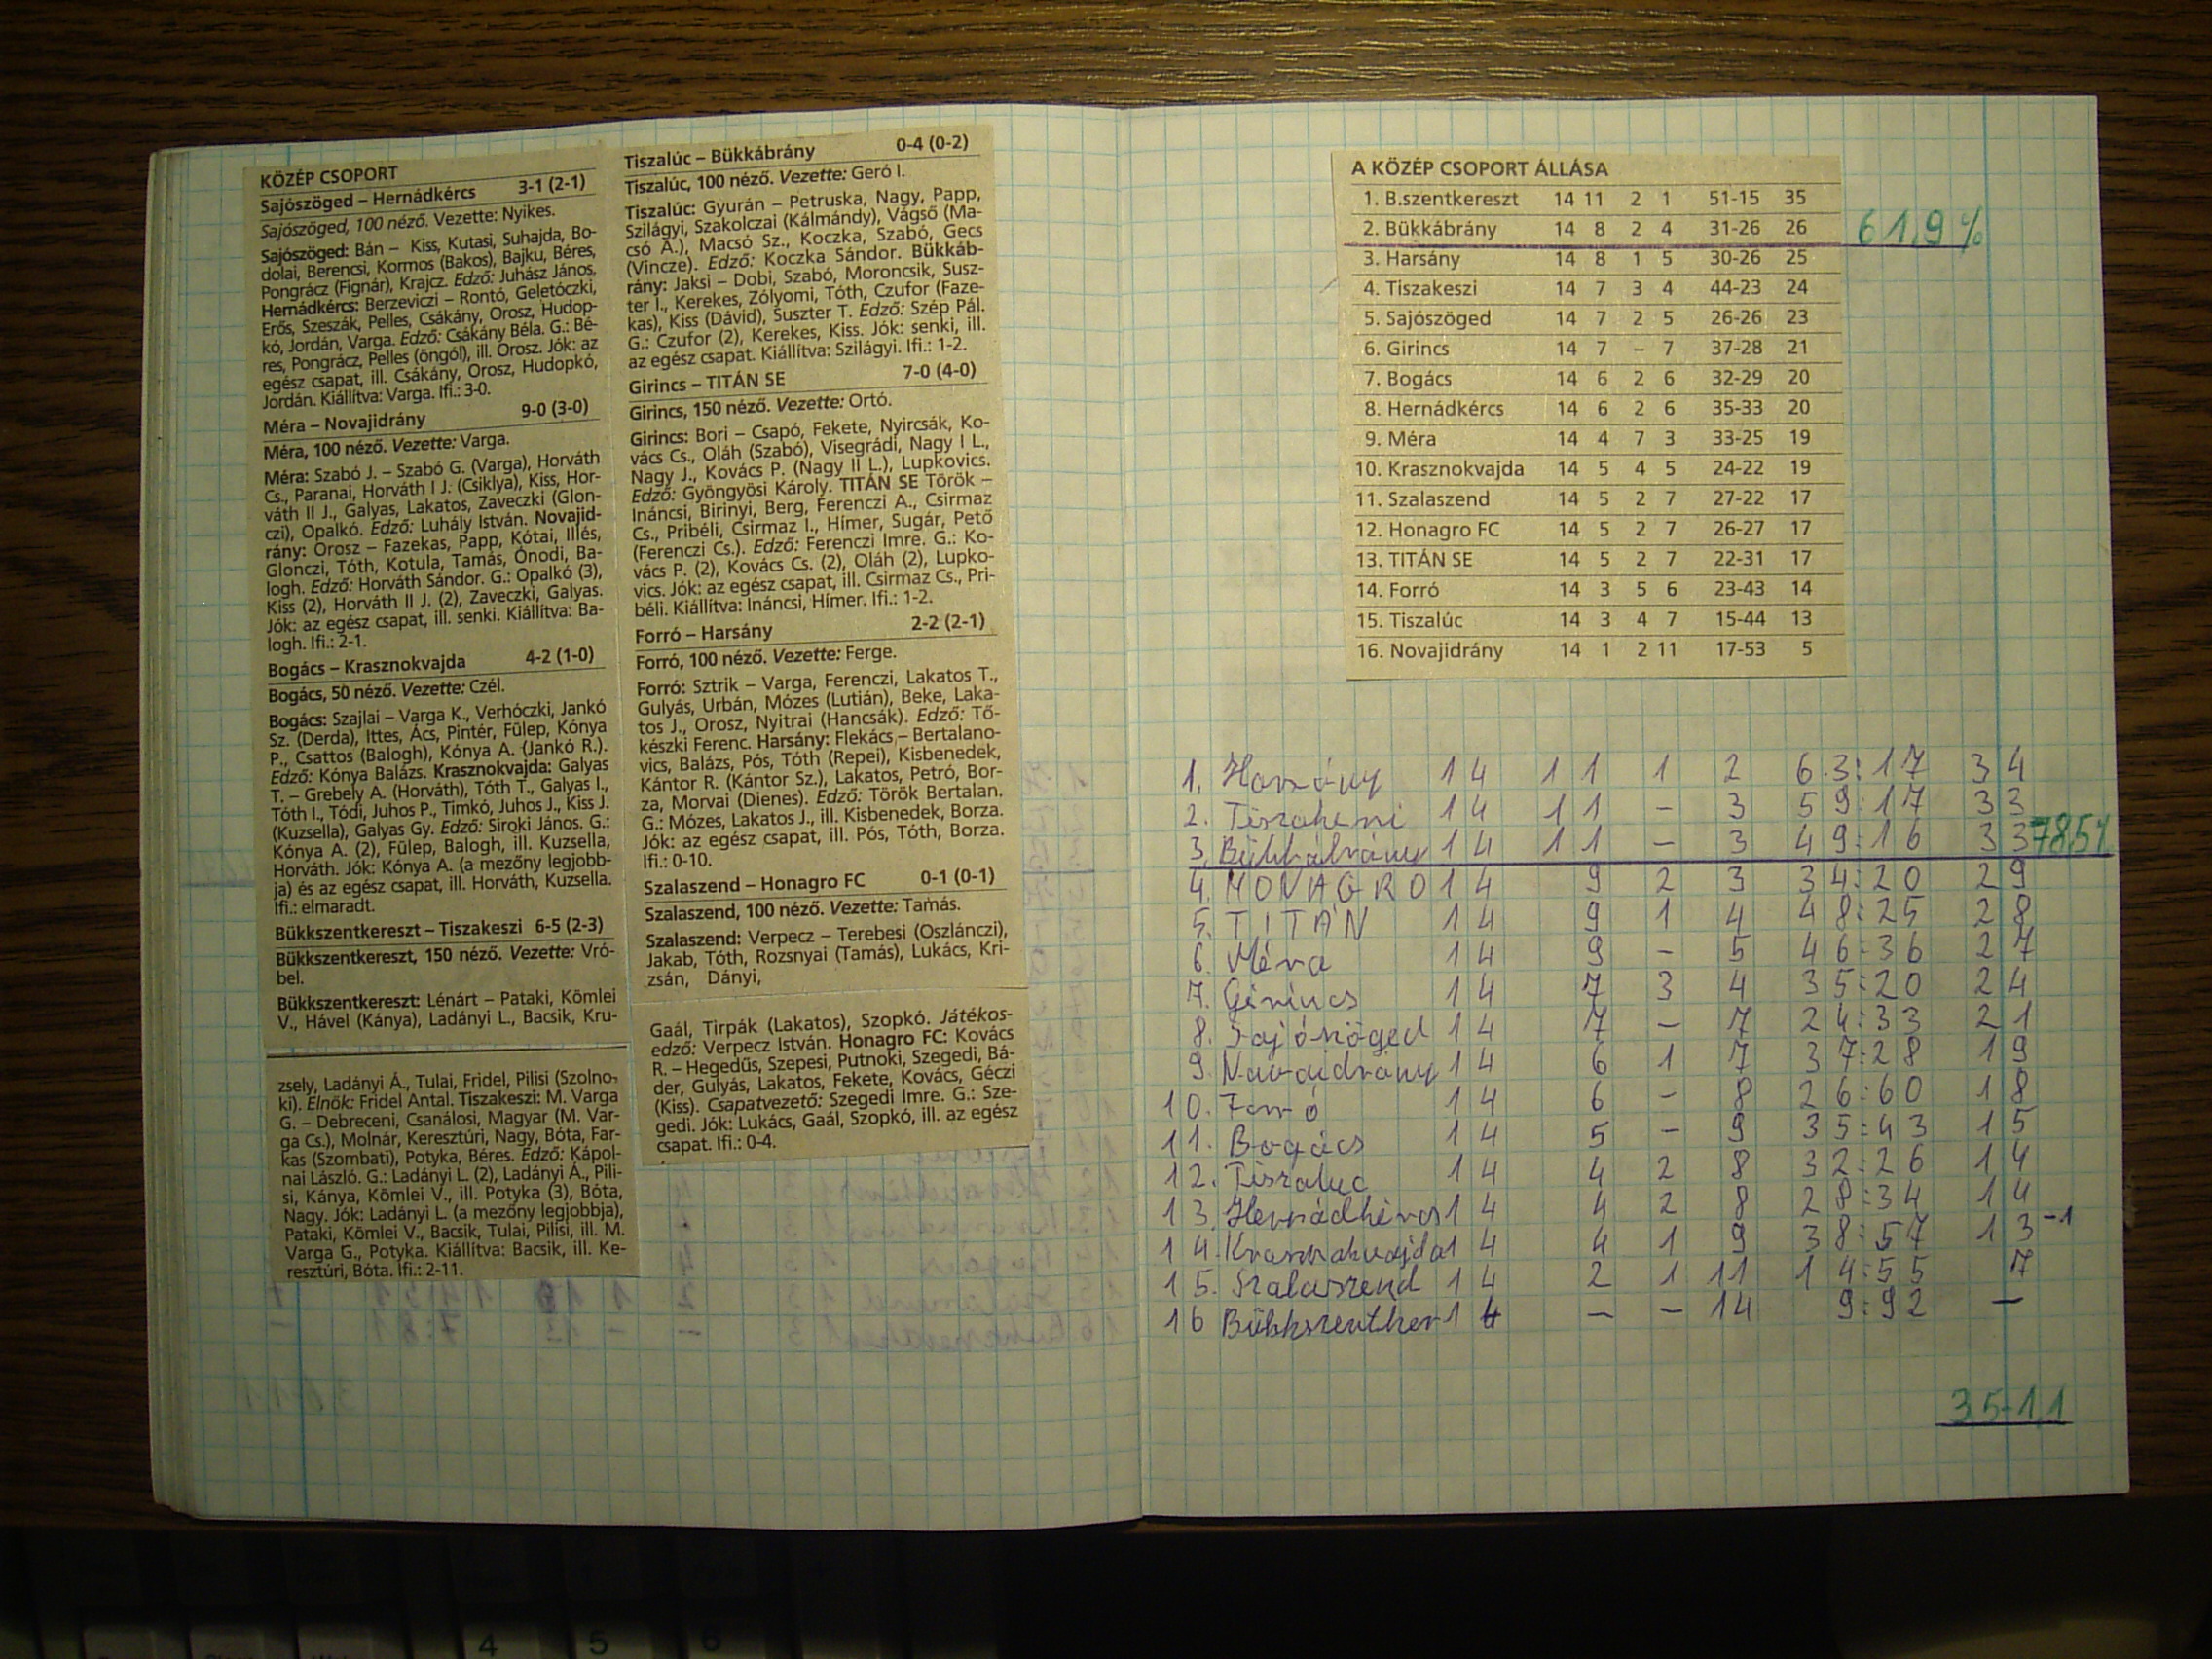 KÖZÉP CSOPORT
Sajószöged – Hernádkércs 3-1 (2-1)
Sajószöged, 100 néző. Vezette: Nyikes.
Sajószöged: Bán – Kiss, Kutasi, Suhajda, Bo-
dolai, Berencsi, Kormos (Bakos), Bajku, Béres,
Pongrácz (Fignár), Krajcz. Edző: Juhász János,
Hernádkércs: Berzeviczi – Rontó, Geletóczki,
Erős, Szeszák, Pelles, Csákány, Orosz, Hudop-
kó, Jordán, Varga. Edző: Csákány Béla. G.: Bé-
res, Pongrácz, Pelles (öngól), ill. Orosz. Jók: az
egész csapat, ill. Csákány, Orosz, Hudopkó,
Jordán. Kiállítva: Varga. Ifi.: 3-0.
Méra – Novajidrány 9-0 (3-0)
Méra, 100 néző. Vezette: Varga.
Méra: Szabó J. – Szabó G. (Varga), Horváth
Cs., Paranai, Horváth I J. (Csiklya), Kiss, Hor-
váth II J., Galyas, Lakatos, Zaveczki (Glon-
czi), Opalkó. Edző: Luhály István. Novajid-
rány: Orosz – Fazekas, Papp, Kótai, Illés,
Glonczi, Tóth, Kotula, Tamás, Ónodi, Ba-
logh. Edző: Horváth Sándor. G.: Opalkó (3),
Kiss (2), Horváth II J. (2), Zaveczki, Galyas.
Jók: az egész csapat, ill. senki. Kiállítva: Ba-
logh. Ifi.: 2-1.
Bogács – Krasznokvajda 4-2 (1-0)
Bogács, 50 néző. Vezette: Czél.
Bogács: Szajlai – Varga K., Verhóczki, Jankó
Sz. (Derda), Ittes, Ács, Pintér, Fülep, Kónya
P., Csattos (Balogh), Kónya A. (Jankó R.).
Edző: Kónya Balázs. Krasznokvajda: Galyas
T. – Grebely A. (Horváth), Tóth T., Galyas I.,
Tóth I., Tódi, Juhos P., Timkó, Juhos J., Kiss J.
(Kuzsella), Galyas Gy. Edző: Siroki János. G.:
Kónya A. (2), Fülep, Balogh, ill. Kuzsella,
Horváth. Jók: Kónya A. (a mezőny legjobb-
ja) és az egész csapat, ill. Horváth, Kuzsella.
Ifi.: elmaradt.
Bükkszentkereszt – Tiszakeszi 6-5 (2-3)
Bükkszentkereszt, 150 néző. Vezette: Vró-
bel.
Bükkszentkereszt: Lénárt – Pataki, Kömlei
V., Hável (Kánya), Ladányi L., Bacsik, Kru-
zsely, Ladányi Á., Tulai, Fridel, Pilisi (Szolno-
ki). Elnök: Fridel Antal. Tiszakeszi: M. Varga
G. – Debreceni, Csanálosi, Magyar (M. Var-
ga Cs.), Molnár, Keresztúri, Nagy, Bóta, Far-
kas (Szombati), Potyka, Béres. Edző: Kápol-
nai László. G.: Ladányi L. (2), Ladányi Á., Pili-
si, Kánya, Kömlei V., ill. Potyka (3), Bóta,
Nagy. Jók: Ladányi L. (a mezőny legjobbja),
Pataki, Kömlei V., Bacsik, Tulai, Pilisi, ill. M.
Varga G., Potyka. Kiállítva: Bacsik, ill. Ke-
resztúri, Bóta. Ifi.: 2-11.
Tiszalúc – Bükkábrány 0-4 (0-2)
Tiszalúc, 100 néző. Vezette: Geró I.
Tiszalúc: Gyurán – Petruska, Nagy, Papp,
Szilágyi, Szakolczai (Kálmándy), Vágső (Ma-
csó A.), Macsó Sz., Koczka, Szabó, Gecs
(Vincze). Edző: Koczka Sándor. Bükkáb-
rány: Jaksi – Dobi, Szabó, Moroncsik, Susz-
ter I., Kerekes, Zólyomi, Tóth, Czufor (Faze-
kas), Kiss (Dávid), Suszter T. Edző: Szép Pál.
G.: Czufor (2), Kerekes, Kiss. Jók: senki, ill.
az egész csapat. Kiállítva: Szilágyi. Ifi.: 1-2.
Girincs – TITÁN SE 7-0 (4-0)
Girincs, 150 néző. Vezette: Ortó.
Girincs: Bori – Csapó, Fekete, Nyircsák, Ko-
vács Cs., Oláh (Szabó), Visegrádi, Nagy I L.,
Nagy J., Kovács P. (Nagy II L.), Lupkovics.
Edző: Gyöngyösi Károly. TITÁN SE Török –
Ináncsi, Birinyi, Berg, Ferenczi A., Csirmaz
Cs., Pribéli, Csirmaz I., Hímer, Sugár, Pető
(Ferenczi Cs.). Edző: Ferenczi Imre. G.: Ko-
vács P. (2), Kovács Cs. (2), Oláh (2), Lupko-
vics. Jók: az egész csapat, ill. Csirmaz Cs., Pri-
béli. Kiállítva: Ináncsi, Hímer. Ifi.: 1-2.
Forró – Harsány 2-2 (2-1)
Forró, 100 néző. Vezette: Ferge.
Forró: Sztrik – Varga, Ferenczi, Lakatos T.,
Gulyás, Urbán, Mózes (Lutián), Beke, Laka-
tos J., Orosz, Nyitrai (Hancsák). Edző: Tő-
készki Ferenc. Harsány: Flekács – Bertalano-
vics, Balázs, Pós, Tóth (Repei), Kisbenedek,
Kántor R. (Kántor Sz.), Lakatos, Petró, Bor-
za, Morvai (Dienes). Edző: Török Bertalan.
G.: Mózes, Lakatos J., ill. Kisbenedek, Borza.
Jók: az egész csapat, ill. Pós, Tóth, Borza.
Ifi.: 0-10.
Szalaszend – Honagro FC 0-1 (0-1)
Szalaszend, 100 néző. Vezette: Tamás.
Szalaszend: Verpecz – Terebesi (Oszlánczi),
Jakab, Tóth, Rozsnyai (Tamás), Lukács, Kri-
zsán, Dányi,
Gaál, Tirpák (Lakatos), Szopkó. Játékos-
edző: Verpecz István. Honagro FC: Kovács
R. – Hegedűs, Szepesi, Putnoki, Szegedi, Bá-
der, Gulyás, Lakatos, Fekete, Kovács, Géczi
(Kiss). Csapatvezető: Szegedi Imre. G.: Sze-
gedi. Jók: Lukács, Gaál, Szopkó, ill. az egész
csapat. Ifi.: 0-4.
A KÖZÉP CSOPORT ÁLLÁSA
1. B.szentkereszt 14 11 2 1 51-15 35
2. Bükkábrány 14 8 2 4 31-26 26 61,9%
3. Harsány 14 8 1 5 30-26 25
4. Tiszakeszi 14 7 3 4 44-23 24
5. Sajószöged 14 7 2 5 26-26 23
6. Girincs 14 7 – 7 37-28 21
7. Bogács 14 6 2 6 32-29 20
8. Hernádkércs 14 6 2 6 35-33 20
9. Méra 14 4 7 3 33-25 19
10. Krasznokvajda 14 5 4 5 24-22 19
11. Szalaszend 14 5 2 7 27-22 17
12. Honagro FC 14 5 2 7 26-27 17
13. TITÁN SE 14 5 2 7 22-31 17
14. Forró 14 3 5 6 23-43 14
15. Tiszalúc 14 3 4 7 15-44 13
16. Novajidrány 14 1 2 11 17-53 5
1. Harsány 14 11 1 2 63:17 34
2. Tiszakeszi 14 11 – 3 59:17 33
3. Bükkábrány 14 11 – 3 49:16 33 78,5%
4. HONAGRO 14 9 2 3 34:20 29
5. TITÁN 14 9 1 4 48:25 28
6. Méra 14 9 – 5 46:36 27
7. Girincs 14 7 3 4 35:20 24
8. Sajószöged 14 7 – 7 24:33 21
9. Novaidrány 14 6 1 7 37:28 19
10. Forró 14 6 – 8 26:60 18
11. Bogács 14 5 – 9 35:43 15
12. Tiszaluc 14 4 2 8 32:26 14
13. Hernádkércs 14 4 2 8 28:34 14
14. Krasznokvajda 14 4 1 9 38:57 13 -1
15. Szalaszend 14 2 1 11 14:55 7
16 Bükkszentker 14 – – 14 9:92 –
35-11
4 5 6